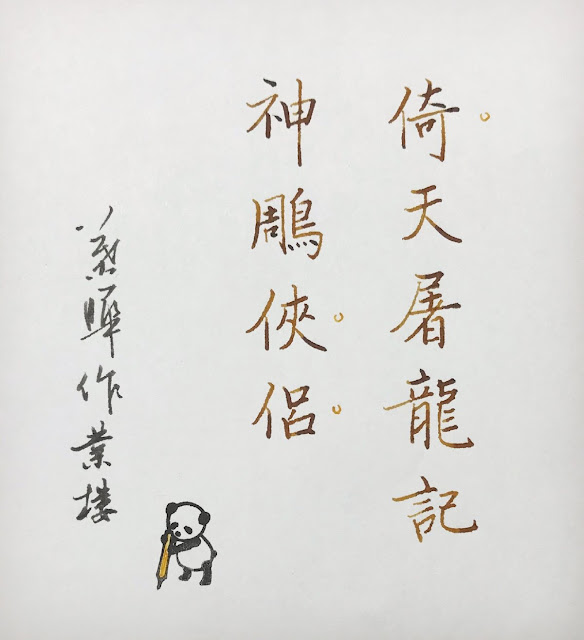 倚天屠龍記
神鵰俠侶
作業楼